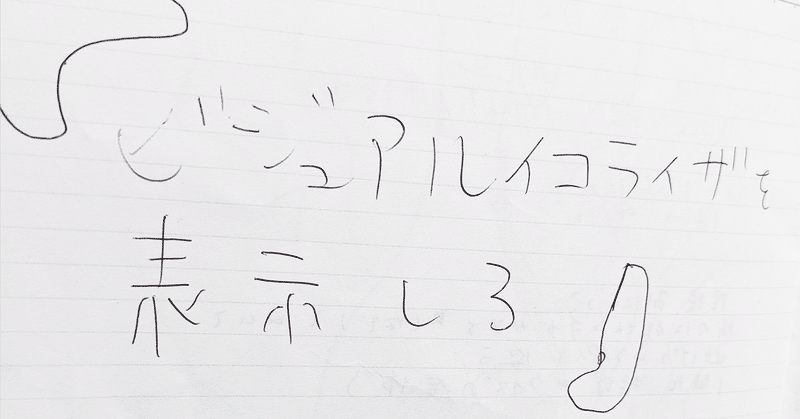 ビジュアルイコライザを
表示しろ